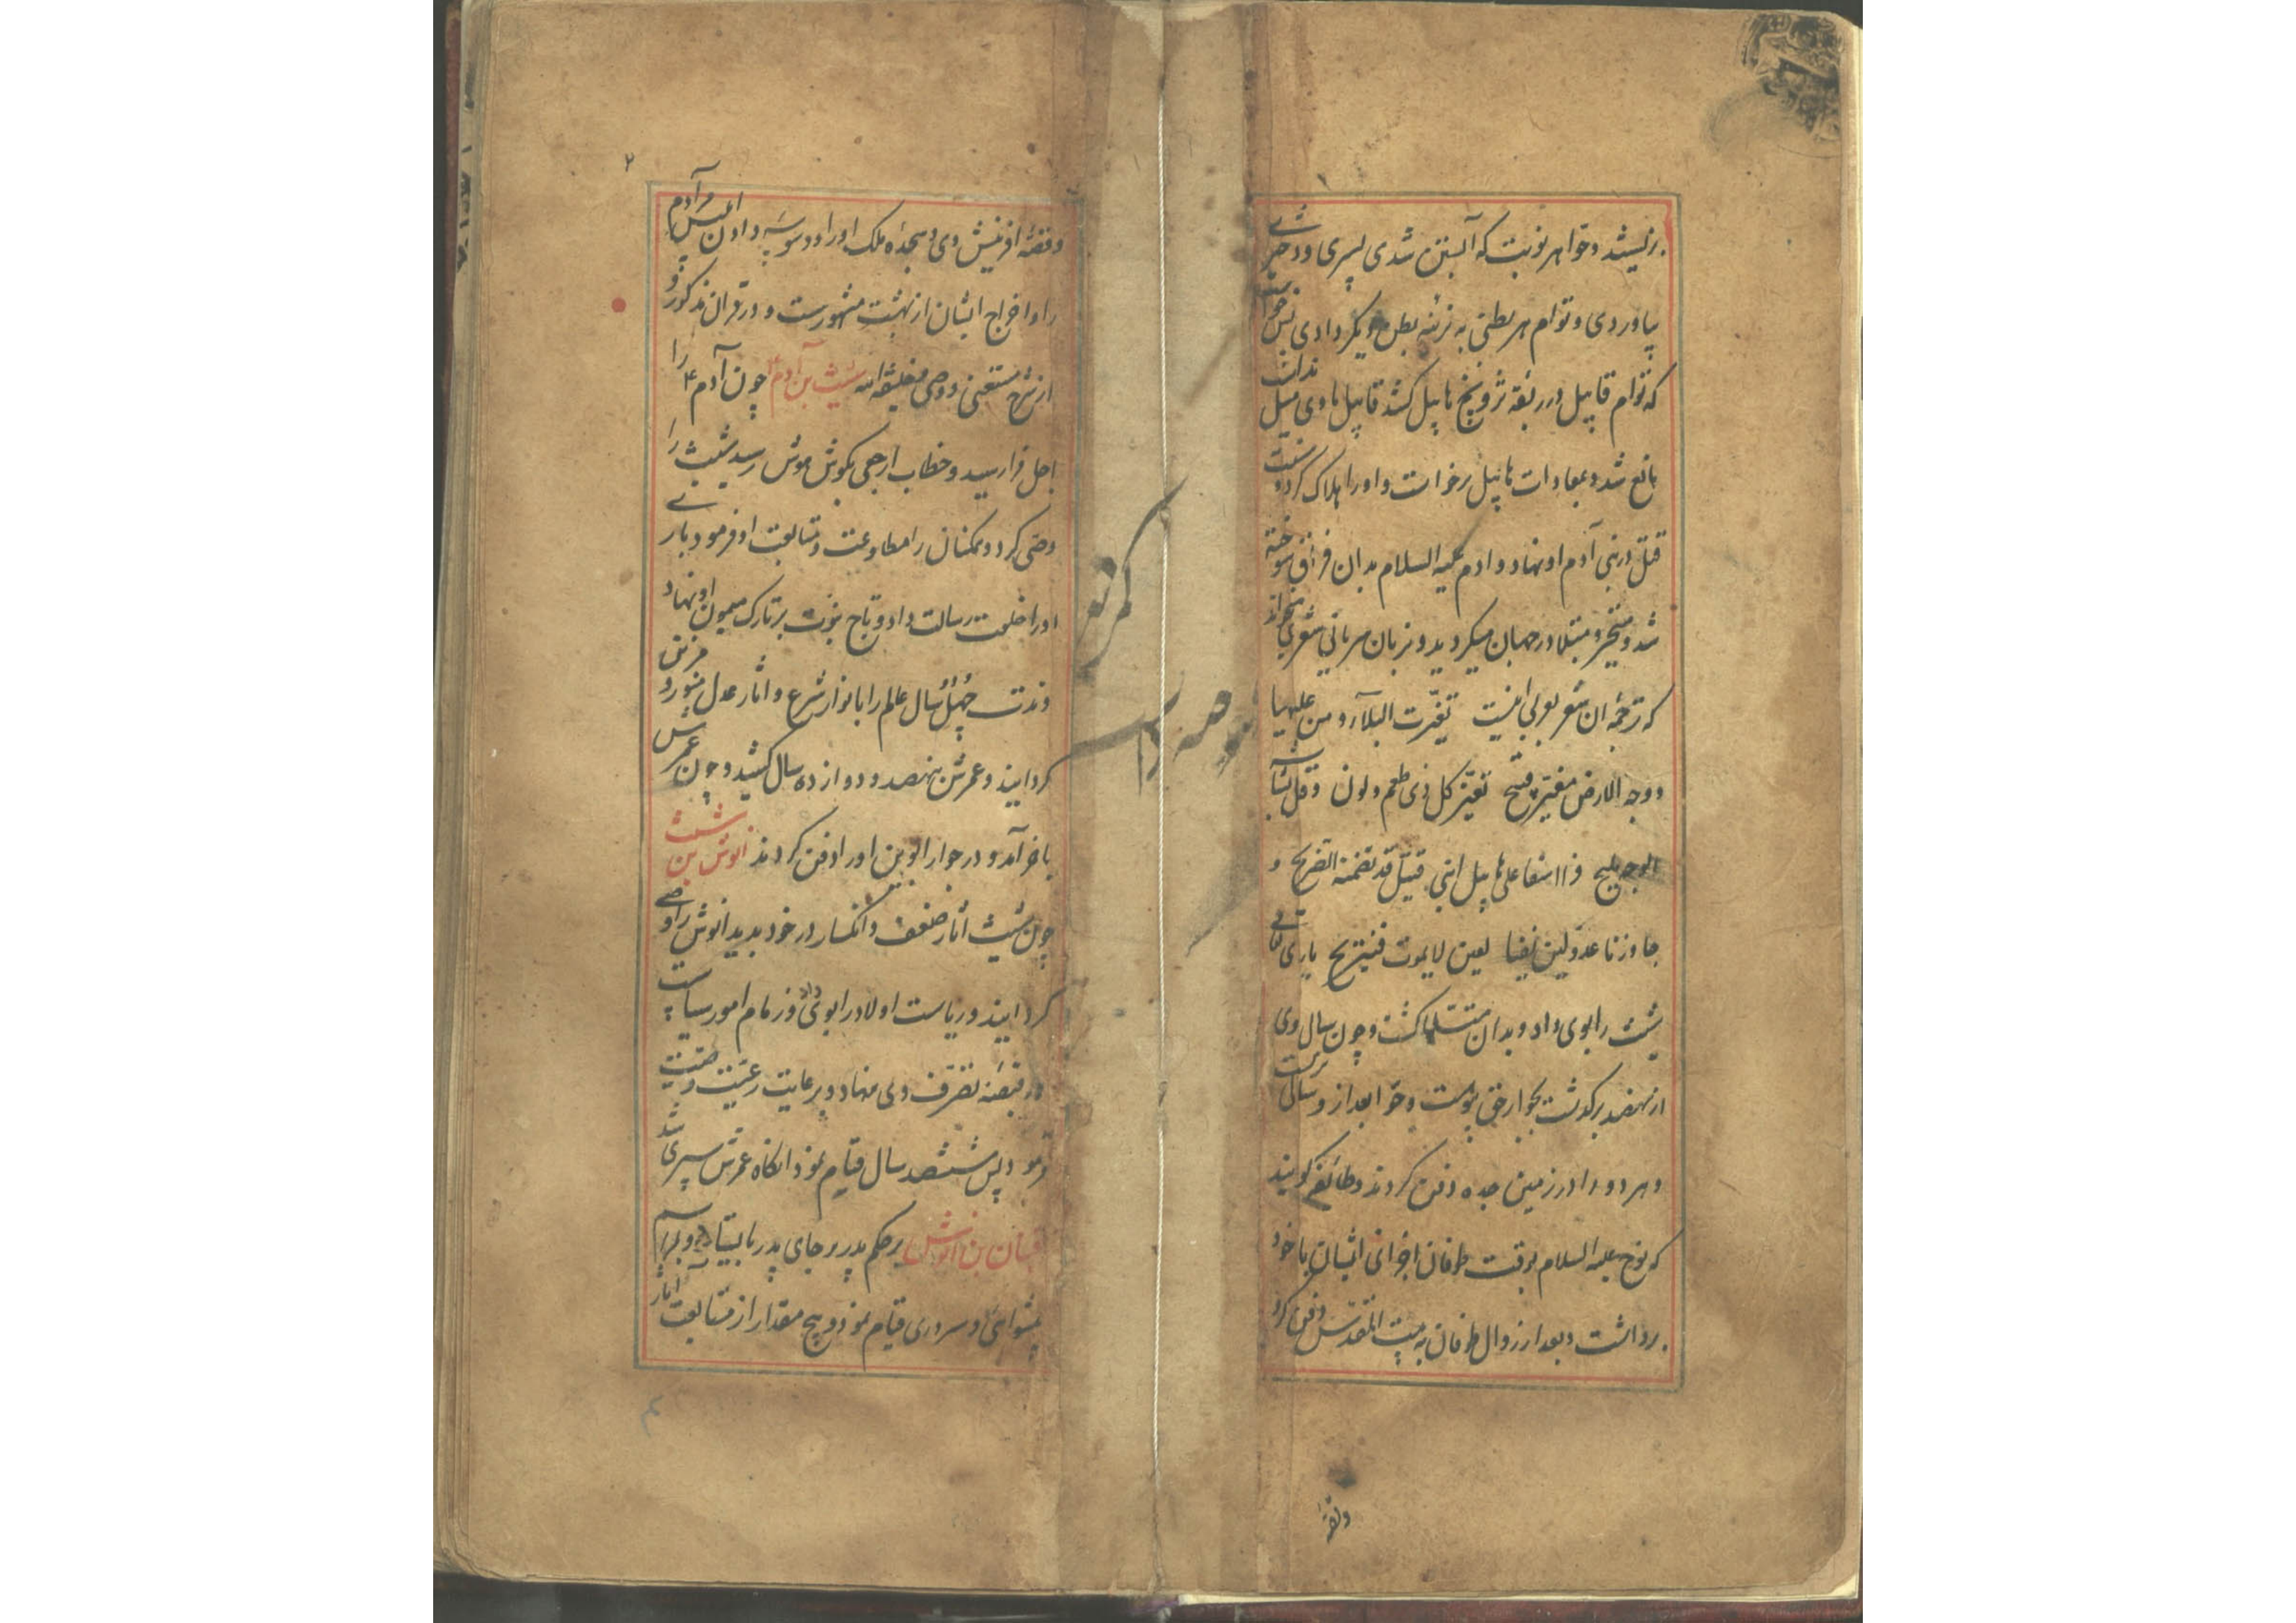 بزیستند و حوا هر نوبت که آبستن شدی پسری و دختری
بیاوردی و توام هر بطنی به نرینه بطن دیگر دادی پس خواست
که توام قابیل در ربقه تزویج هابیل کشد قابیل با وی میل داشت
مانع شد و بمعادات هابیل برخاست و او را هلاک کرد و سنت
قتل در بنی آدم او نهاد و ادم علیه السلام بدان فراق سوخته
شد و متحیر و مبتلا در جهان میکردید و بزبان سریانی شعری
که ترجمه ان شعر بعربی اینست تغیرت البلاد و من علیها
و وجه الارض مغبر قبیح تغیر کل ذی طعم و لون و قل بشاشة
الوجه ملیح فوااسفا علی هابیل ابنی قتیل قد تضمنه الضریح و
جاوزنا عدو لیس یفنا لعین لا یموت فنستریح باری تعالی
شیث را بوی داد و بدان متسلی کشت و چون سال وی
از نهصد برکذشت بجوار حق پیوست و حوا بعد از و سالی بزیست
و هر دو را در زمین جده دفن کردند و طائفه کویند
که نوح علیه السلام بوقت طوفان اجزای ایشان با خود
برداشت و بعد از زوال طوفان به بیت المقدس دفن کرد
و قصه
۲
و قصه افرینش وی و سجده ملک او را و وسوسه دادن ابلیس آدم
را و اخراج ایشان از بهشت مشهورست و در قران مذکور و
از شرح مستغنی و وصی و خلیفه الله شیث بن آدم ع چون آدم ع را
اجل فرا رسید و خطاب ارجعی بکوش هوش رسید شیث را
وصی کرد و همکنان را مطاوعت و متابعت او فرمود باری
او را خلعت رسالت داد و تاج نبوت بر تارک میمون او نهاد
و مدت چهل سال عالم را بانوار شرع و اثار عدل منور و مزین
کردانید و عمرش نهصد و دوازده سال کشید و چون عمرش
باخر آمد و در جوار ابوین او را دفن کردند انوش بن شیث
چون شیث اثار ضعف و انکسار در خود بدید انوش را وصی
کردانید و ریاست اولاد را بوی داد و زمام امور سیاست
در قبضه تصرف وی نهاد و برعایت رعیت وصیت
فرمود پس ششصد سال قیام نمود انکاه عمرش سپری شد
قینان بن انوش بر حکم پدر بر جای پدر بایستاد و بمراسم
پیشوائی و سروری قیام نمود و هیچ مقدار از متابعت آثار